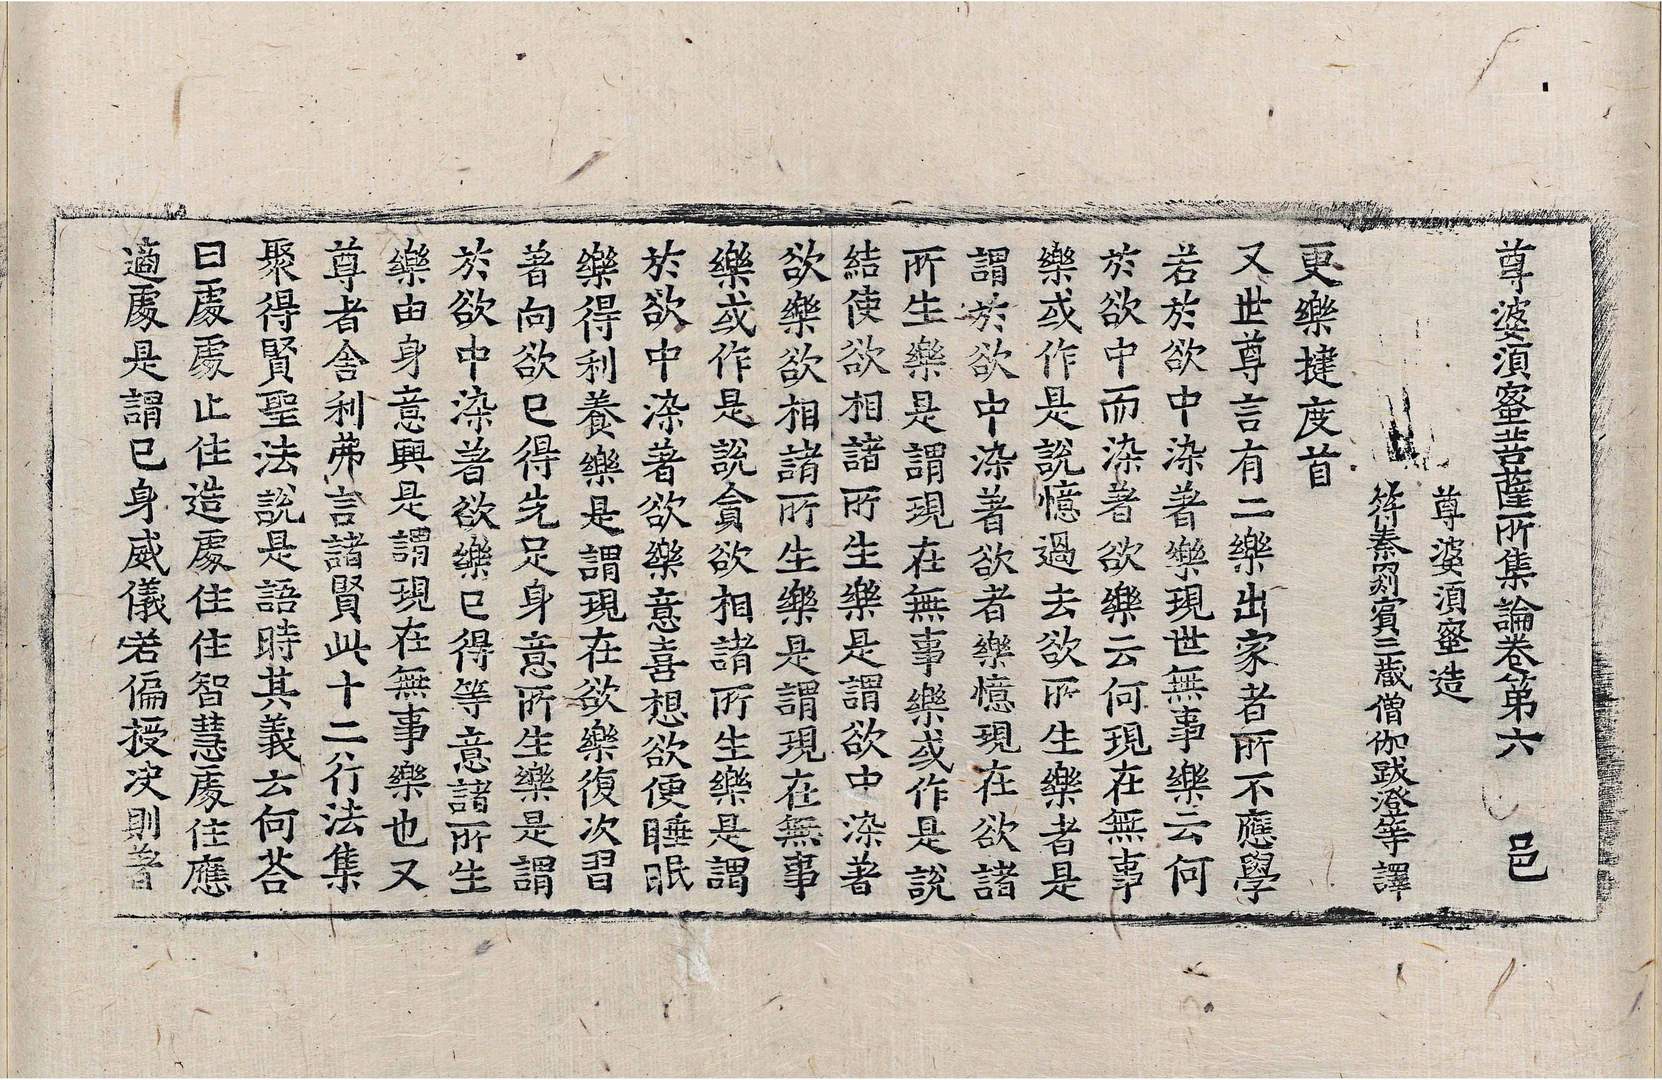 尊婆須蜜菩薩所集論卷第六 邑
尊婆須蜜造
符秦罽賓三藏僧伽跋澄等譯
更樂揵度首
又世尊言有二樂出家者所不應學
若於欲中染著樂現世無事樂云何
於欲中而染著欲樂云何現在無事
樂或作是說憶過去欲所生樂者是
謂於欲中染著欲者樂憶現在欲諸
所生樂是謂現在無事樂或作是說
結使欲相諸所生樂是謂欲中染著
欲樂欲相諸所生樂是謂現在無事
樂或作是說貪欲相諸所生樂是謂
於欲中染著欲樂意喜想欲便睡眠
樂得利養樂是謂現在欲樂復次習
著向欲已得先足身意所生樂是謂
於欲中染著欲樂已得等意諸所生
樂由身意興是謂現在無事樂也又
尊者舍利弗言諸賢此十二行法集
聚得賢聖法說是語時其義云何荅
曰處處止住造處住住智慧處住應
適處是謂已身威儀若偏授决則著